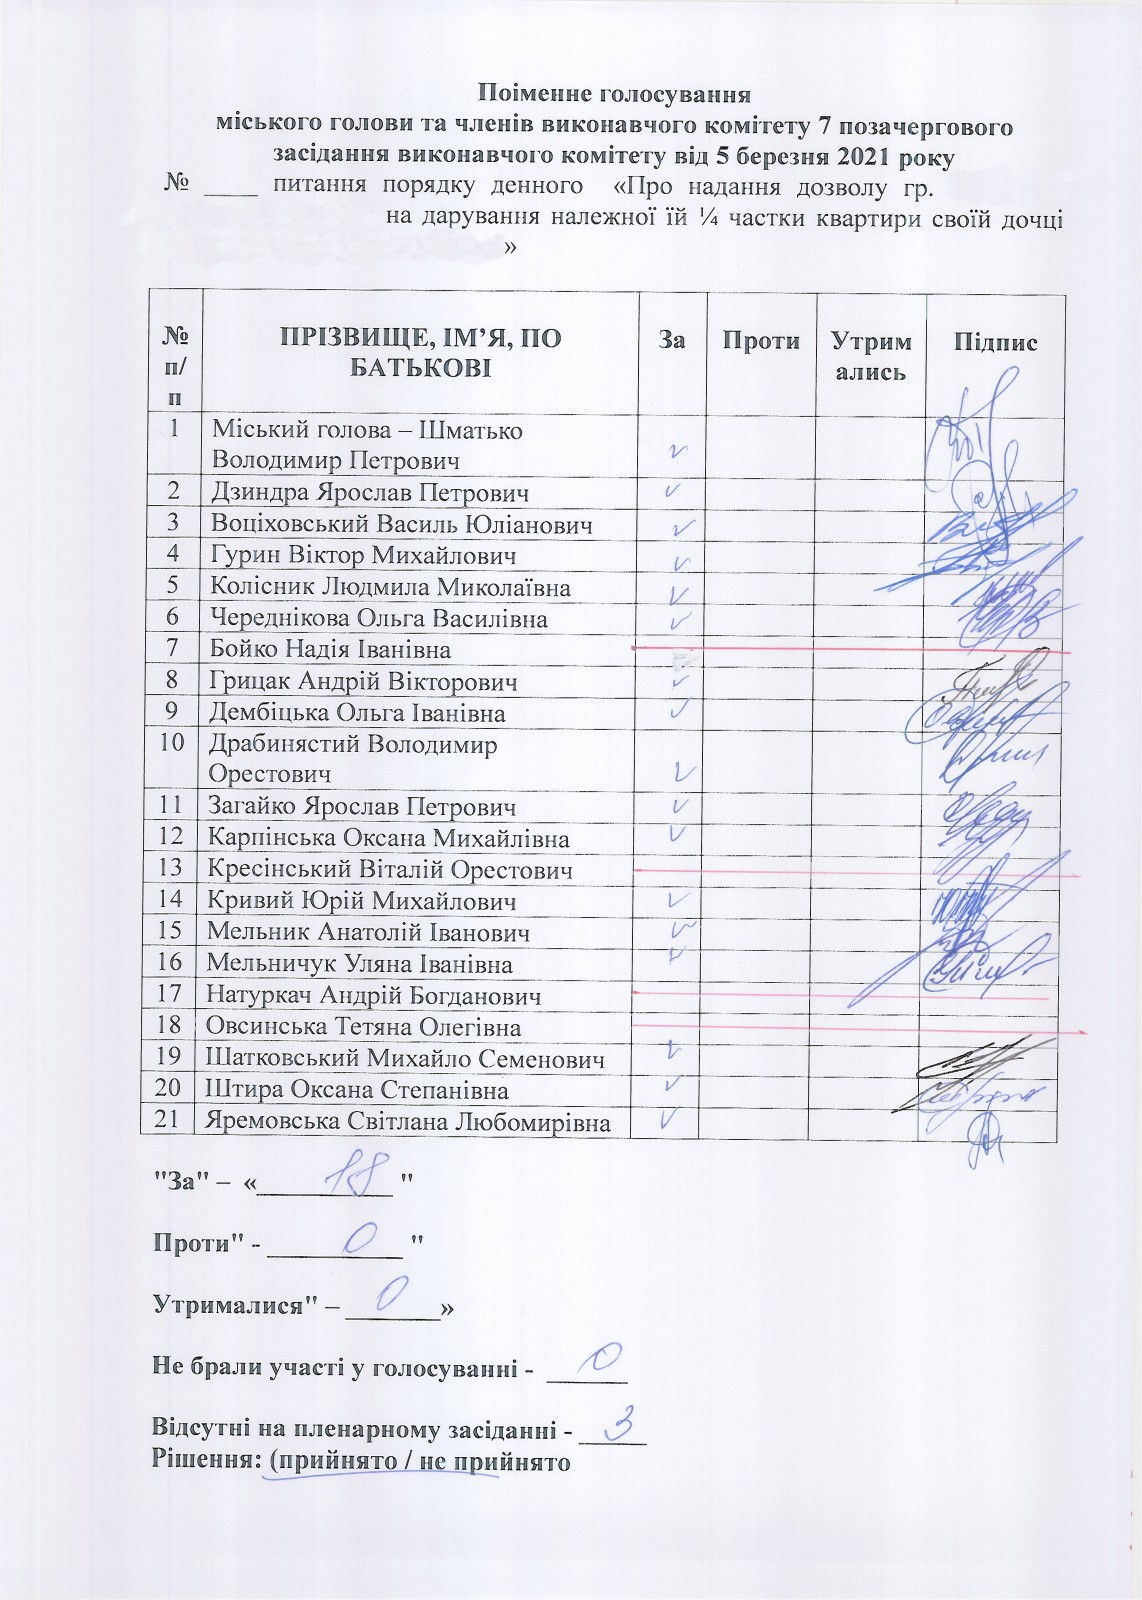 Поіменне голосування
міського голови та членів виконавчого комітету 7 позачергового
засідання виконавчого комітету від 5 березня 2021 року
№ ____ питання порядку денного «Про надання дозволу гр.
на дарування належної їй ¼ частки квартири своїй дочці
»
№ п/п ПРІЗВИЩЕ, ІМ’Я, ПО БАТЬКОВІ За Проти Утримались Підпис
1 Міський голова – Шматько
Володимир Петрович
2 Дзиндра Ярослав Петрович
3 Воціховський Василь Юліанович
4 Гурин Віктор Михайлович
5 Колісник Людмила Миколаївна
6 Череднікова Ольга Василівна
7 Бойко Надія Іванівна
8 Грицак Андрій Вікторович
9 Дембіцька Ольга Іванівна
10 Драбинястий Володимир
Орестович
11 Загайко Ярослав Петрович
12 Карпінська Оксана Михайлівна
13 Кресінський Віталій Орестович
14 Кривий Юрій Михайлович
15 Мельник Анатолій Іванович
16 Мельничук Уляна Іванівна
17 Натуркач Андрій Богданович
18 Овсинська Тетяна Олегівна
19 Шатковський Михайло Семенович
20 Штира Оксана Степанівна
21 Яремовська Світлана Любомирівна
"За" – «____18____ "
Проти" - ____0____ "
Утрималися" – ____0____»
Не брали участі у голосуванні - ____0____
Відсутні на пленарному засіданні - ____3____
Рішення: (прийнято / не прийнято